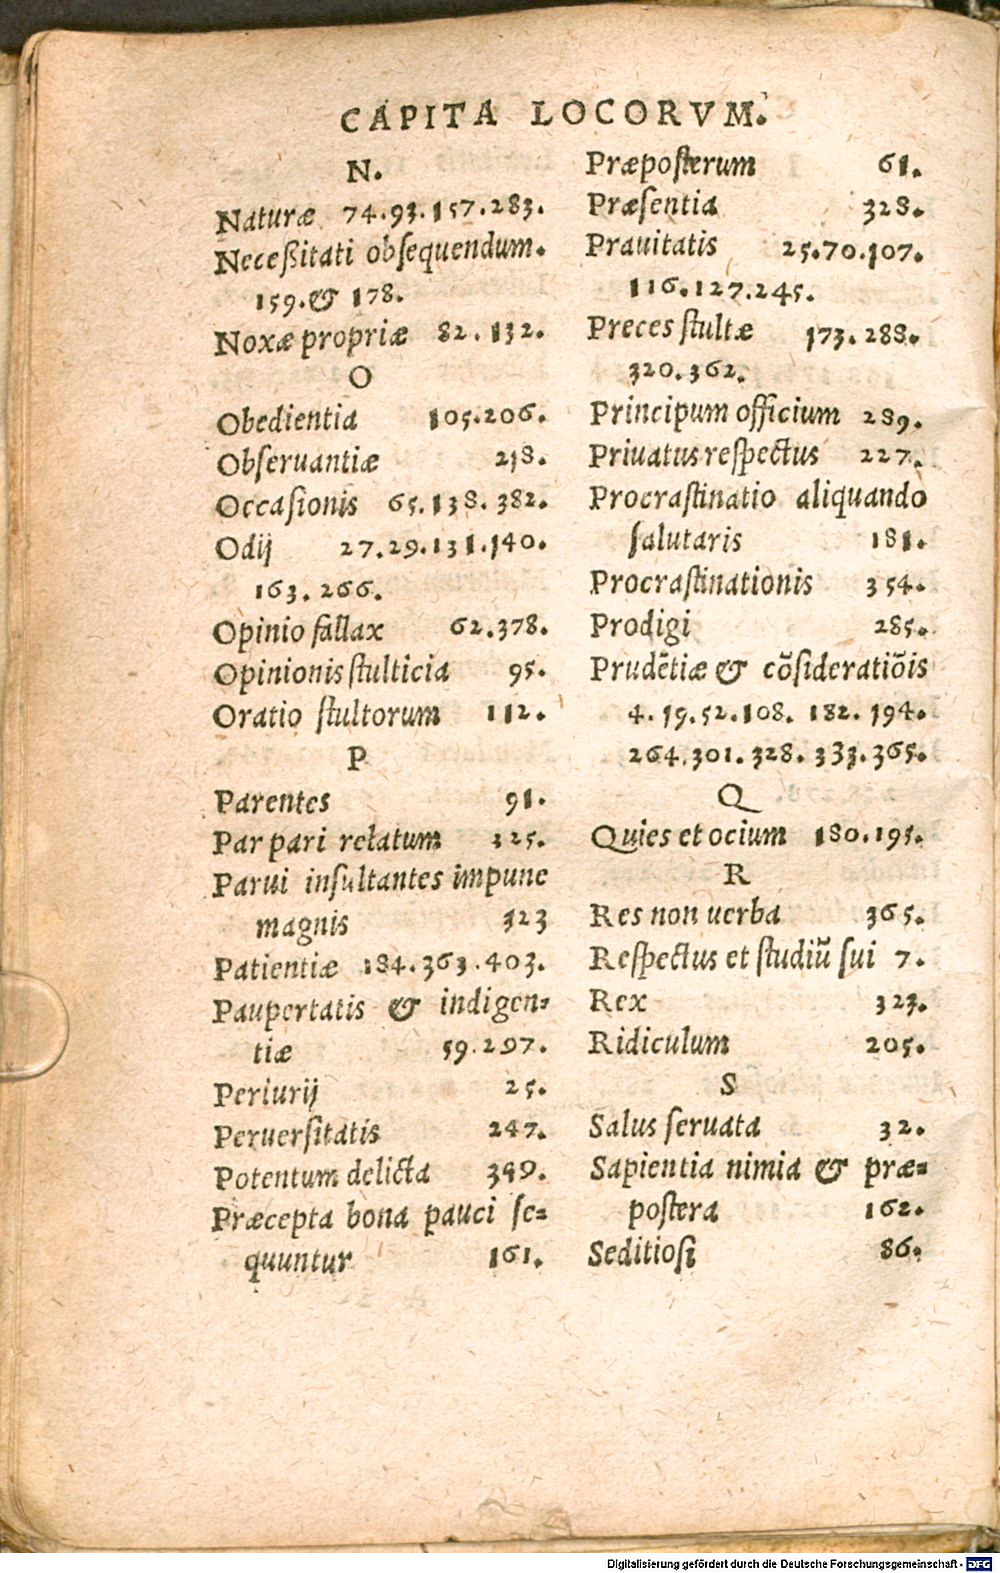 CAPITA LOCORVM.
N.
Naturæ 74.93.157.283.
Neceßitati obsequendum.
159.& 178.
Noxæ propriæ 82.132.
O
Obedientia 105.206.
Obseruantiæ 218.
Occasionis 65.138.382.
Odij 27.29.131.140.
163.266.
Opinio fallax 62.378.
Opinionis stulticia 95.
Oratio stultorum 112.
P
Parentes 91.
Par pari relatum 325.
Parui insultantes impune
magnis 323
Patientiæ 184.363.403.
Paupertatis & indigen=
tiæ 59.297.
Periurij 25.
Peruersitatis 247.
Potentum delicta 399.
Præcepta bona pauci se=
quuntur 161.
Præposterum 61.
Præsentia 328.
Prauitatis 25.70.107.
116.127.245.
Preces stultæ 173.288.
320.362.
Principum officium 289.
Priuatus respectus 227.
Procrastinatio aliquando
salutaris 181.
Procrastinationis 354.
Prodigi 285.
Prudētiæ & cōsideratiōis
4.19.52.108.182.194.
264.301.328.333.365.
Q
Quies et ocium 180.195.
R
Res non uerba 365.
Respectus et studiū sui 7.
Rex 323.
Ridiculum 205.
S
Salus seruata 32.
Sapientia nimia & præ=
postera 162.
Seditiosi 86.
Digitalisierung gefördert durch die Deutsche Forschungsgemeinschaft - DFG